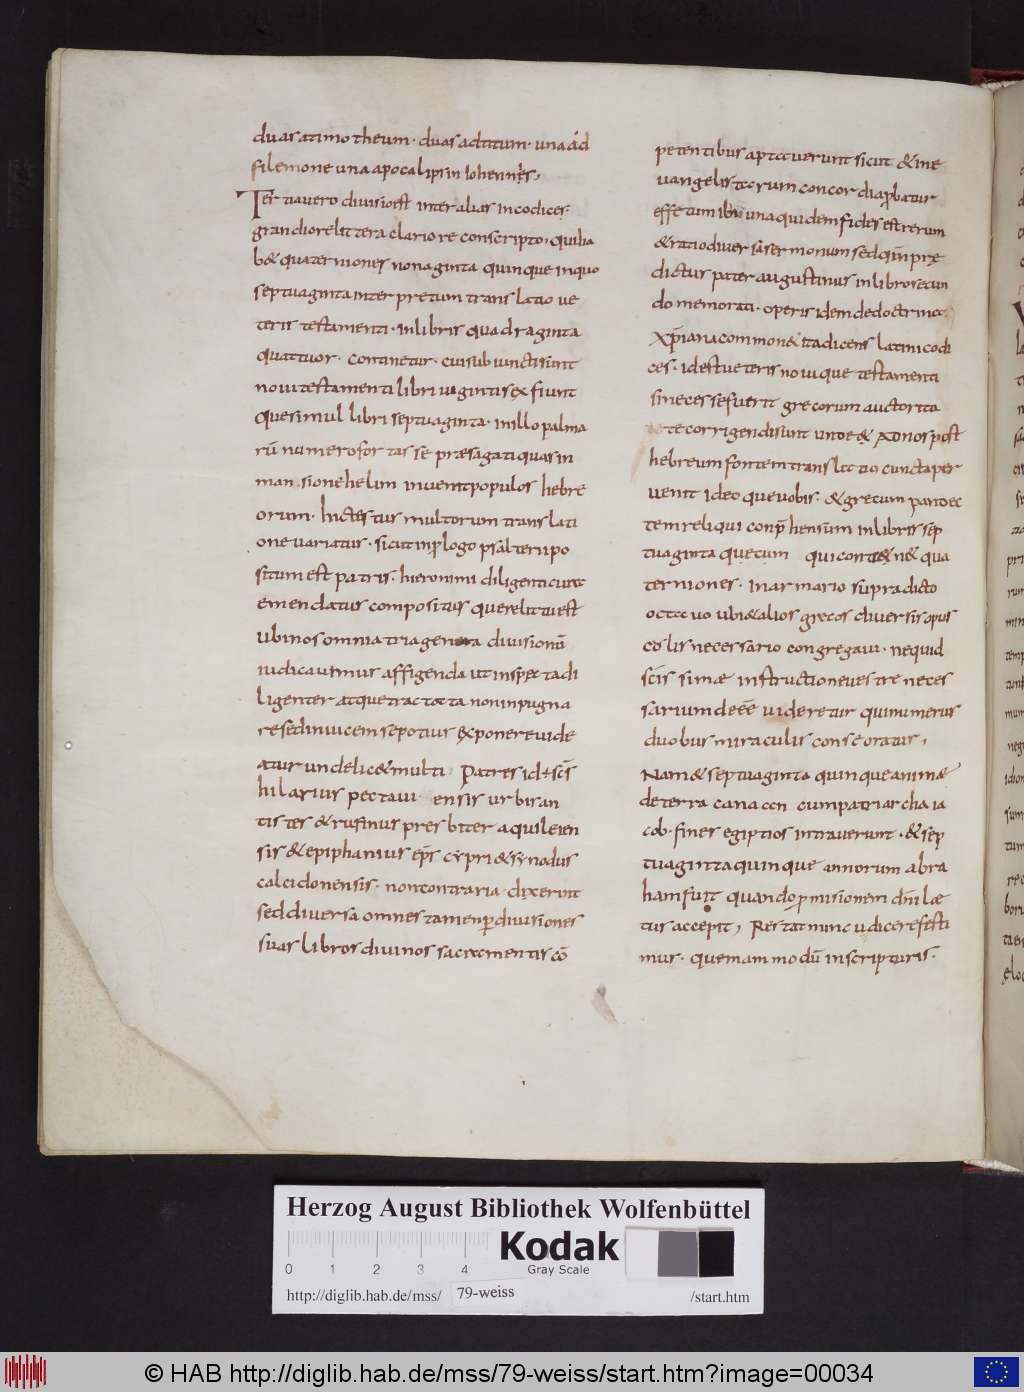 duas atimotheum · duas adtitum · una ad
filemone una apocalipsin Iohennis,
Tertia vero divisio est inter alias in codices·
grandiore littera clariore conscripto· qui ha
b& quaterniones nonaginta quinque in quo
septuaginta interpretum translatio ve
teris testamenti · in libris quadraginta
quattuor · continetur · cui subiuncti sunt
novi testamenti libri viginti sex fiunt
que simul libri septuaginta · in illo palma
rū numero fortasse præsagati quas in
mansione helim invenit populos hebre
orum· hic textus multorum translati
one variatus · sicut in prologo psalterii po
situm est patris · hieronimi diligenti cura
emendatus compositusque relictus est
ubi nos omnia tria genera divisionū
iudicavimus affigenda ut inspecta di
ligenter atque tractata non inpugna
re sed invicem se potius exponere vide
atur unde lic& multi patres id ÷ scs̄
hilarius pectavi ensis urbis an
tistes & rufinus presbiter aquileien
sis & epiphanius eps̄ cypri & synodus
calcidonensis · non contraria · dixerint
sed diversa omnes tamen p divisiones
suas libros divinos sacramentis cō
petentibus aptaverunt sicut & in e
vangelistarum concordia pbatur
esse tum ibi una quidem fides est rerum
& ratio diversa sermonum sed qm̄ prę
dictus pater augustinus in libro secun
do memorati · operis id em de doctrina
xp̄iana common& ita dicens latini codi
ces · id est veteris novi que testamenti
si necesse fuerit grecorum auctorita
te corrigendi sunt unde & ad nos post
hebreum fontem translatio cuncta per
venit ideoque vobis · & grecum pandec
tem reliqui conp̄hensum in libris sep
tuaginta quę tum qui contin& in& qua
terniones · in armario supradicto
octavo ubi & alios grecos diversis opus
colis necessario congregavi · nequid
scīs simæ instructione vestre neces
sarium deēē videretur qui numerus
duobus miraculis consecratur,
Nam & septuaginta quinque animæ
de terra canaan cum patriarcha ia
cob · fines egiptios intraverunt · & sep
tuaginta quinque annorum abra
ham fuit quando pmisionem dn̄i læ
tus accepit, Restat nunc ut dicere festi
mus · quemammodū in scripturis·
Herzog August Bibliothek Wolfenbüttel
0 1 2 3 4
Kodak
Gray Scale
http://diglib.hab.de/mss/ 79-weiss /start.htm
© HAB http://diglib.hab.de/mss/79-weiss/start.htm?image=00034